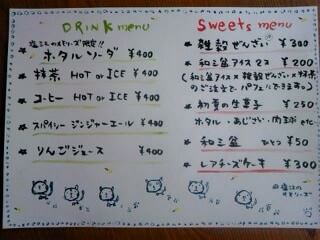 DRINK menu
ホタルソーダ ¥400
抹茶 HOT or ICE ¥400
コーヒー HOT or ICE ¥400
スパイシー ジンジャーエール ¥400
りんごジュース ¥400
Sweets menu
雑穀ぜんざい ¥300
和三盆アイスマス ¥200
(和三盆アイス × 雑穀ぜんざい × 抹茶
のご注文で パフェにできます。)
初夏の生菓子 ¥250
ホタル・あじさい・肉球 etc
和三盆 ひとつ ¥50
レアチーズケーキ ¥300